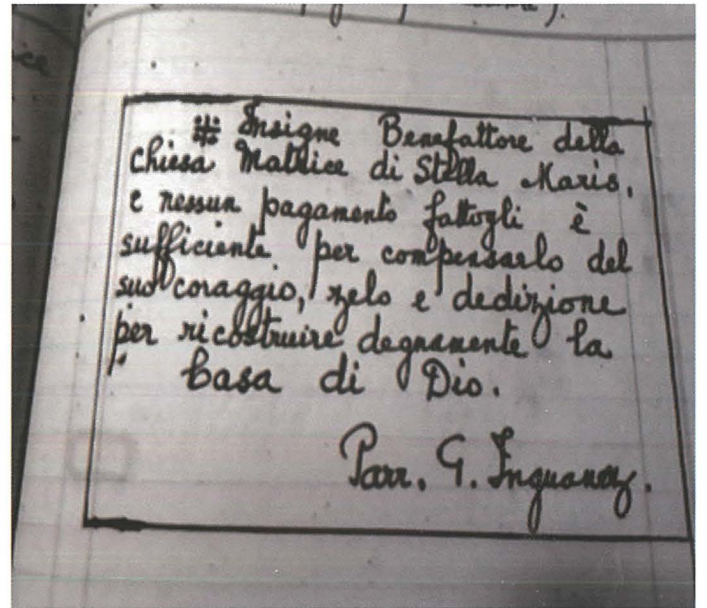 # Insigne Benefattore della
Chiesa Matrice di Stella Maris,
e nessun pagamento fattogli è
sufficiente per compensarlo del
suo coraggio, zelo e dedizione
per ricostruire degnamente la
Casa di Dio.
Parr. G. Inguanez.